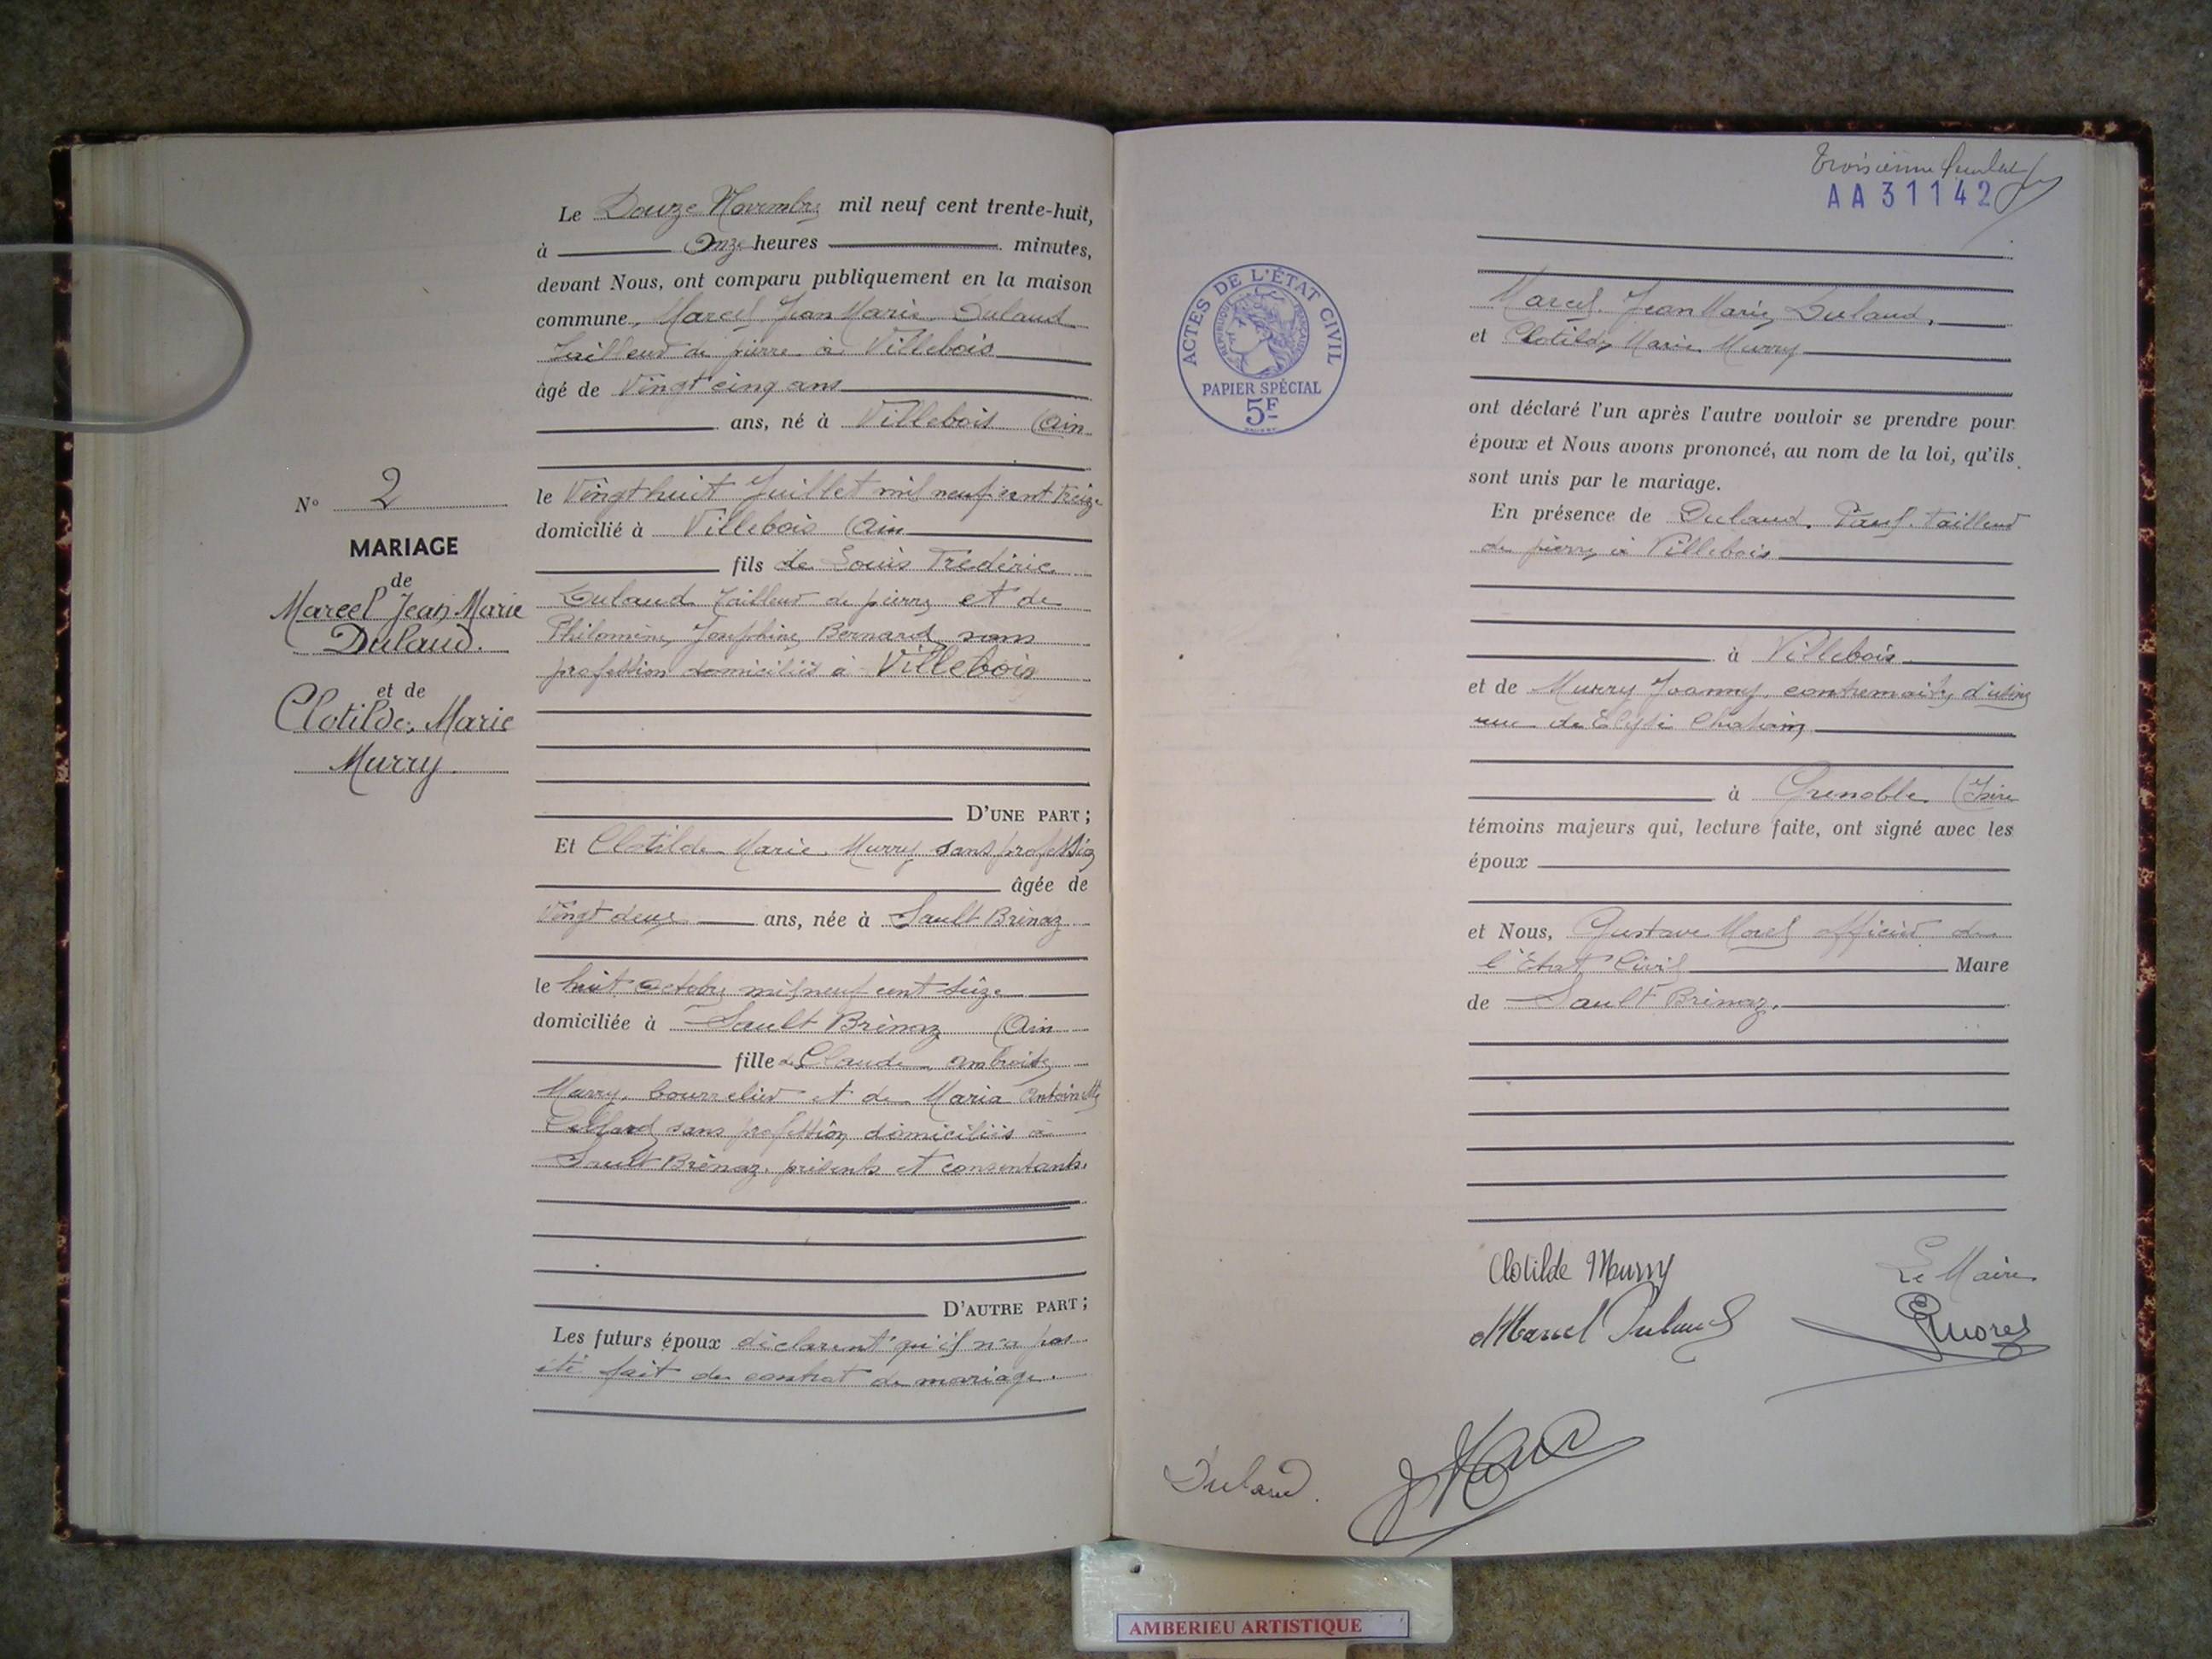 Le Douze Novembre mil neuf cent trente-huit,
à Onze heures minutes,
devant Nous, ont comparu publiquement en la maison
commune, Marcel Jean Marie Dulaud
Tailleur de pierre à Villebois
âgé de Vingt cinq ans
ans, né à Villebois (Ain
le Vingt huit Juillet mil neuf cent treize
domicilié à Villebois (Ain
fils de Louis Frédéric
Dulaud Tailleur de pierre et de
Philomène, Joséphine, Bernard sans
profession domiciliés à Villebois
N° 2
MARIAGE
de
Marcel Jean Marie
Dulaud.
et de
Clotilde, Marie
Murry
D'UNE PART ;
Et Clotilde Marie Murry sans profession
âgée de
Vingt deux ans, née à Sault Brénaz
le huit octobre mil neuf cent seize
domiciliée à Sault Brénaz (Ain
fille de Claude ambroise
Murry, bourrelier et de Maria antoinette
sans profession domiciliés à
Sault Brénaz, présents et consentants.
D'AUTRE PART ;
Les futurs époux déclarent qu'il n'a pas
été fait de contrat de mariage.
Troisième
AA 31142
ACTES DE L'ÉTAT CIVIL
RÉPUBLIQUE FRANÇAISE
PAPIER SPÉCIAL
5F
Marcel Jean Marie Dulaud,
et Clotilde Marie Murry
ont déclaré l'un après l'autre vouloir se prendre pour
époux et Nous avons prononcé, au nom de la loi, qu'ils
sont unis par le mariage.
En présence de Dulaud, Paul tailleur
de pierre à Villebois
à Villebois
et de Murry Joanny, contremaitre d'usine
rue de Elysée Chatain
à Grenoble (Isère
témoins majeurs qui, lecture faite, ont signé avec les
époux
et Nous, Gustave Morel officier de
l'Etat Civil Maire
de Sault Brénaz.
Clotilde Murry
Le Maire
Marcel Dulaud
GMorel
Dulaud.
AMBERIEU ARTISTIQUE